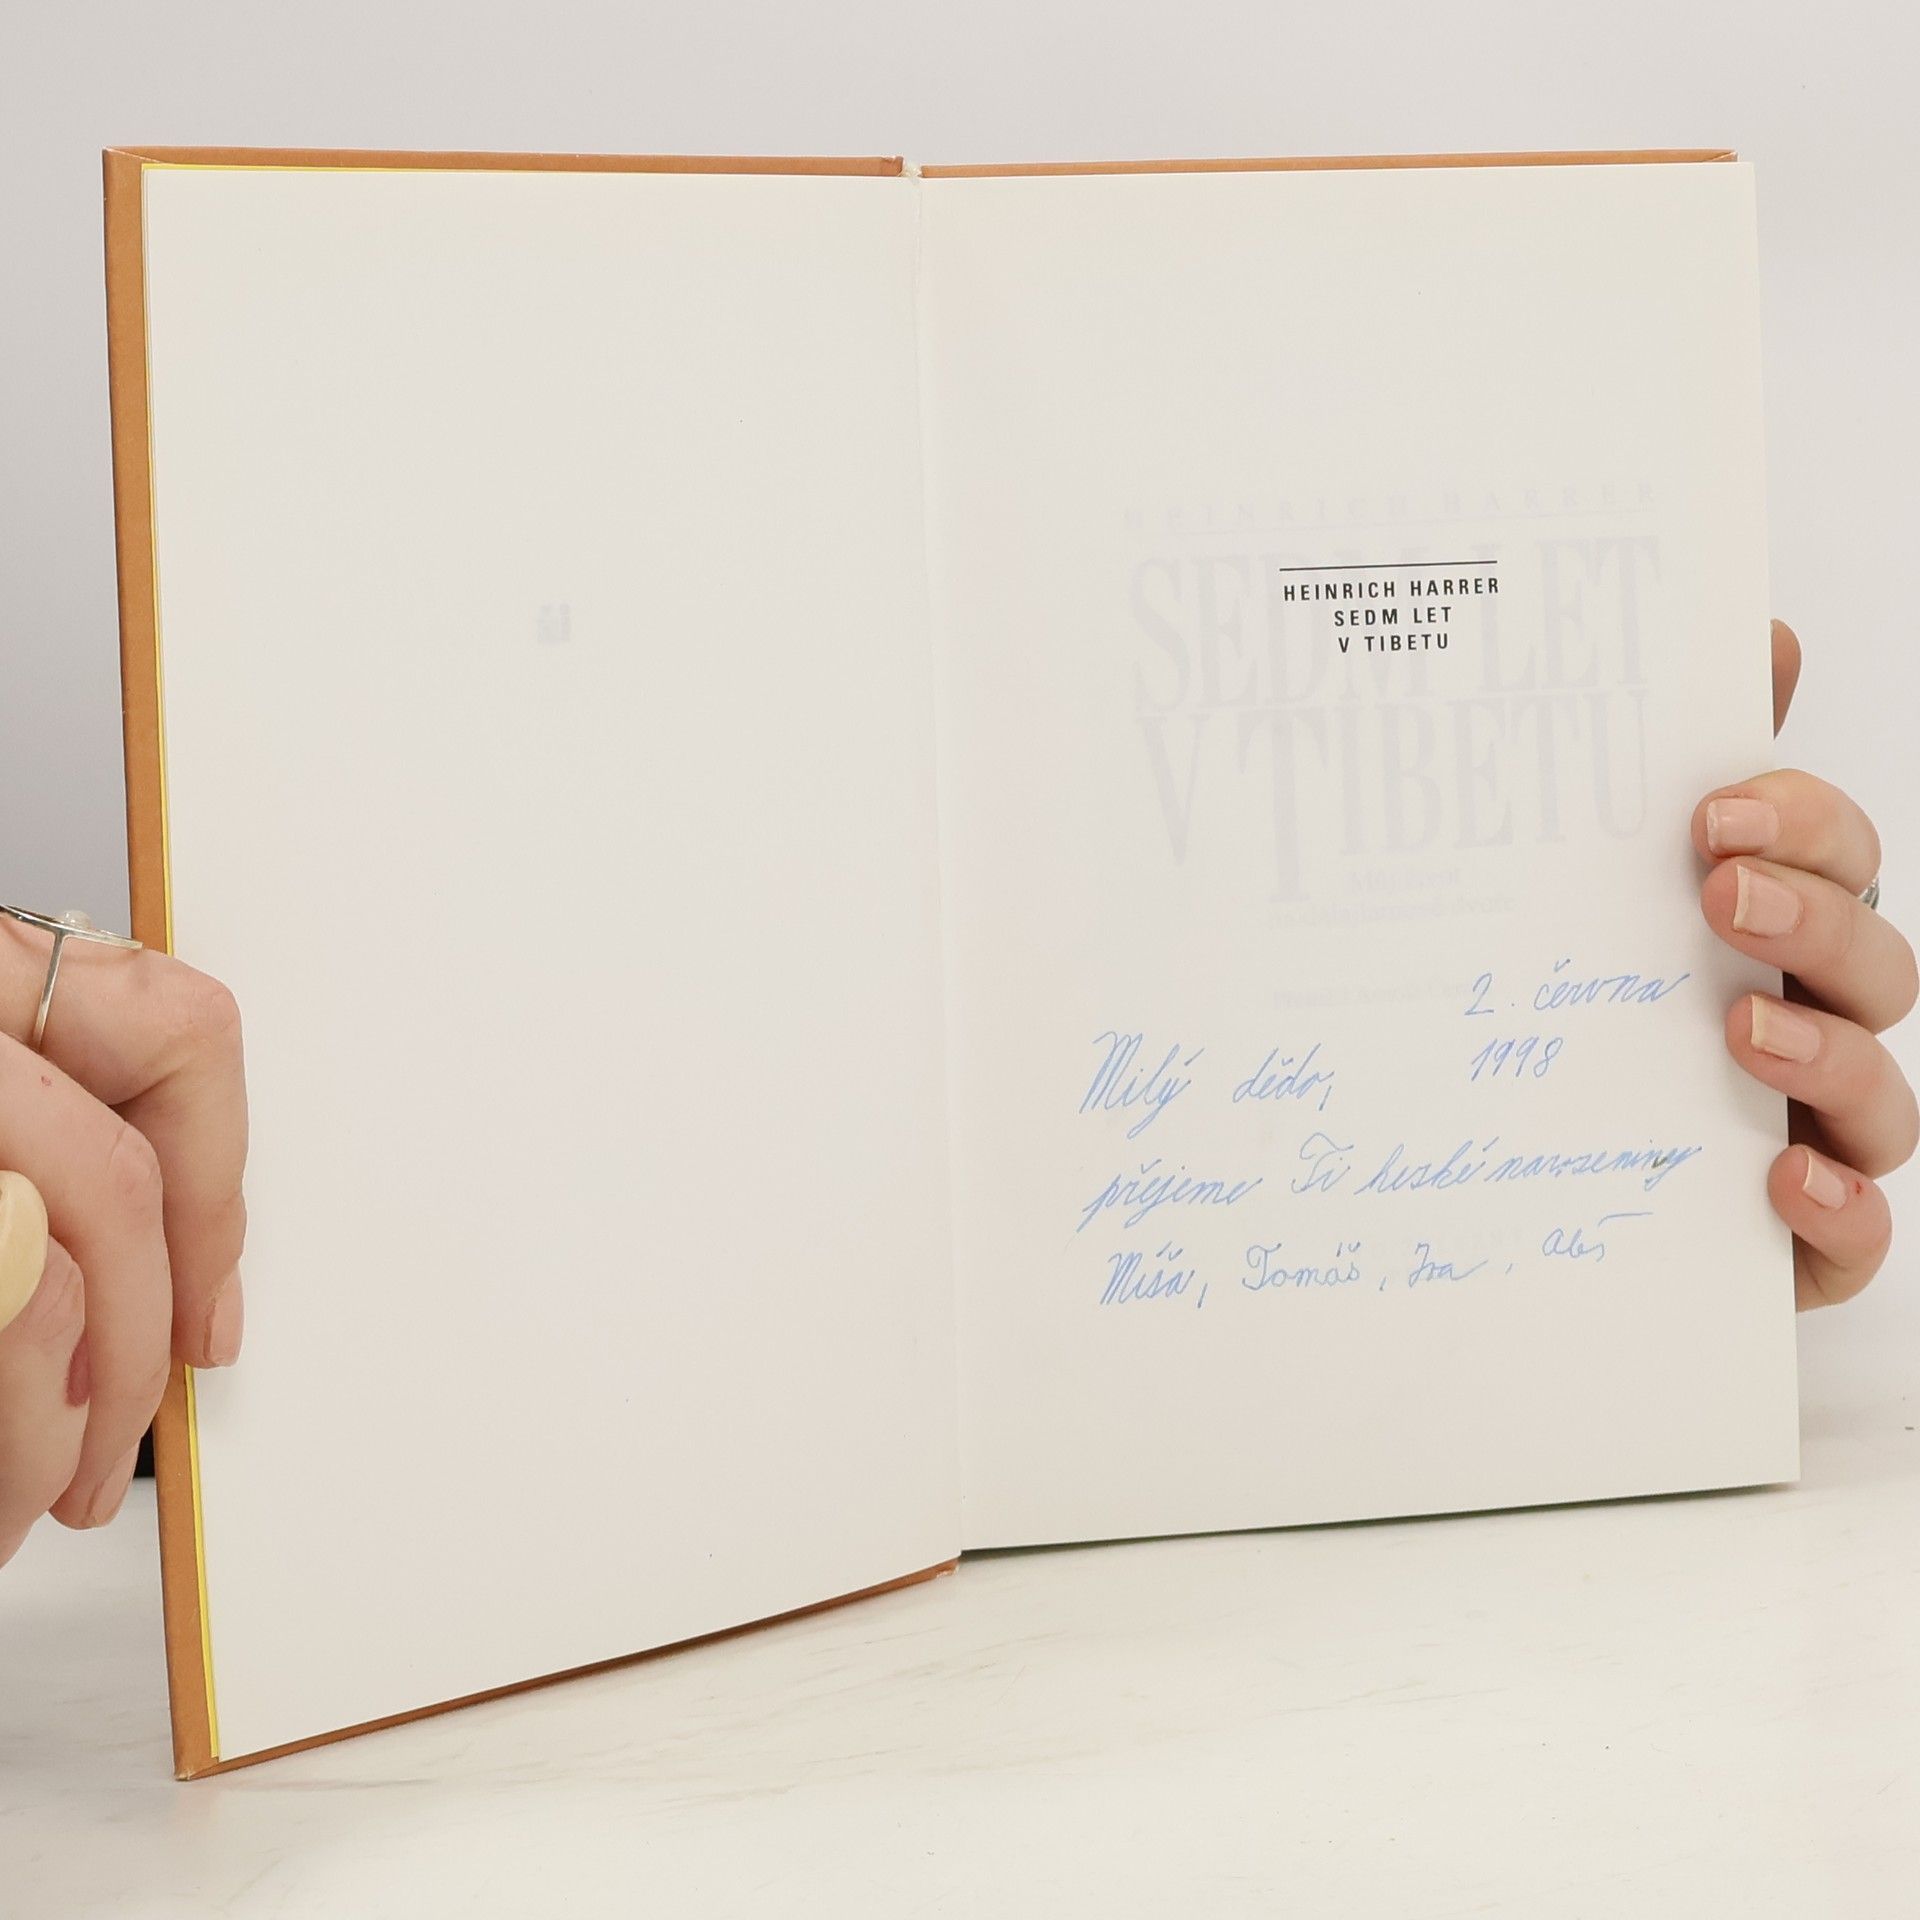 HEINRICH HARRER
SEDM LET
V TIBETU
HEINRICH HARRER
SEDM LET
V TIBETU
Můj život
na dalajlamově dvoře
2. června
1998
Milý dědo,
přejeme Ti hezké narozeniny
Míša, Tomáš, Iva, Aleš